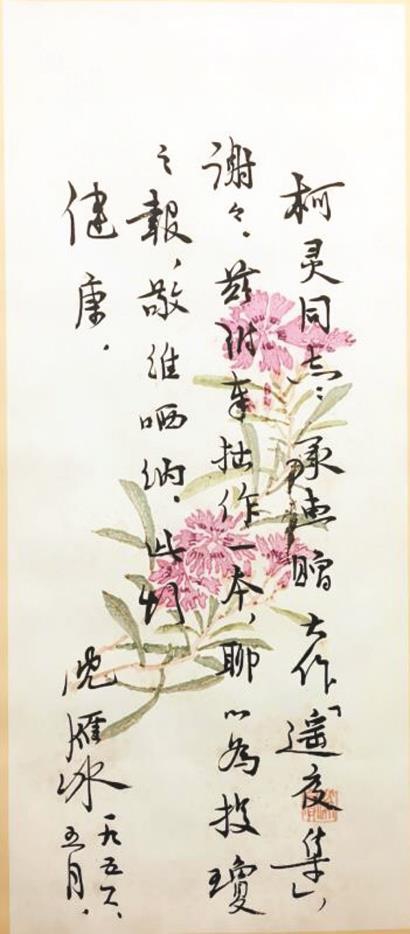 柯灵同志：承惠赠大作「遥夜集」，
谢々．兹附奉拙作一本，聊以为投瓊
之報，敬维哂纳．此颂
健康．
沈雁冰
一九五六、
五月．